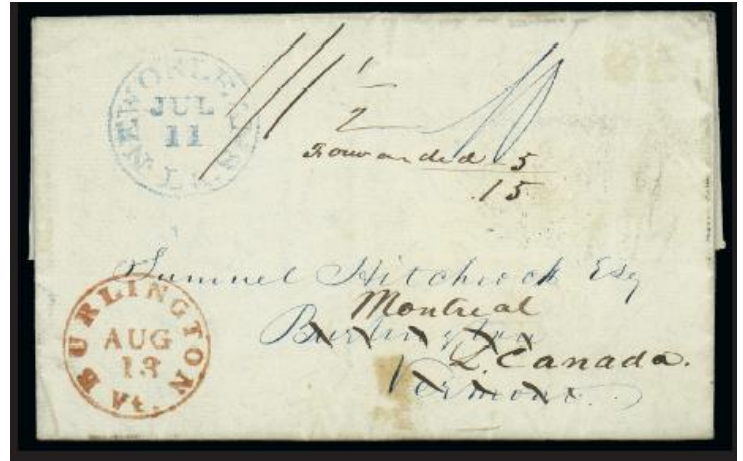 NEW ORLEANS LA.
JUL
11
11 1/2 10
Forwarded 5
15
Sumnel Hitchcock Esq
Montreal
Burlington
L. Canada.
Vermont.
BURLINGTON Vt.
AUG
13